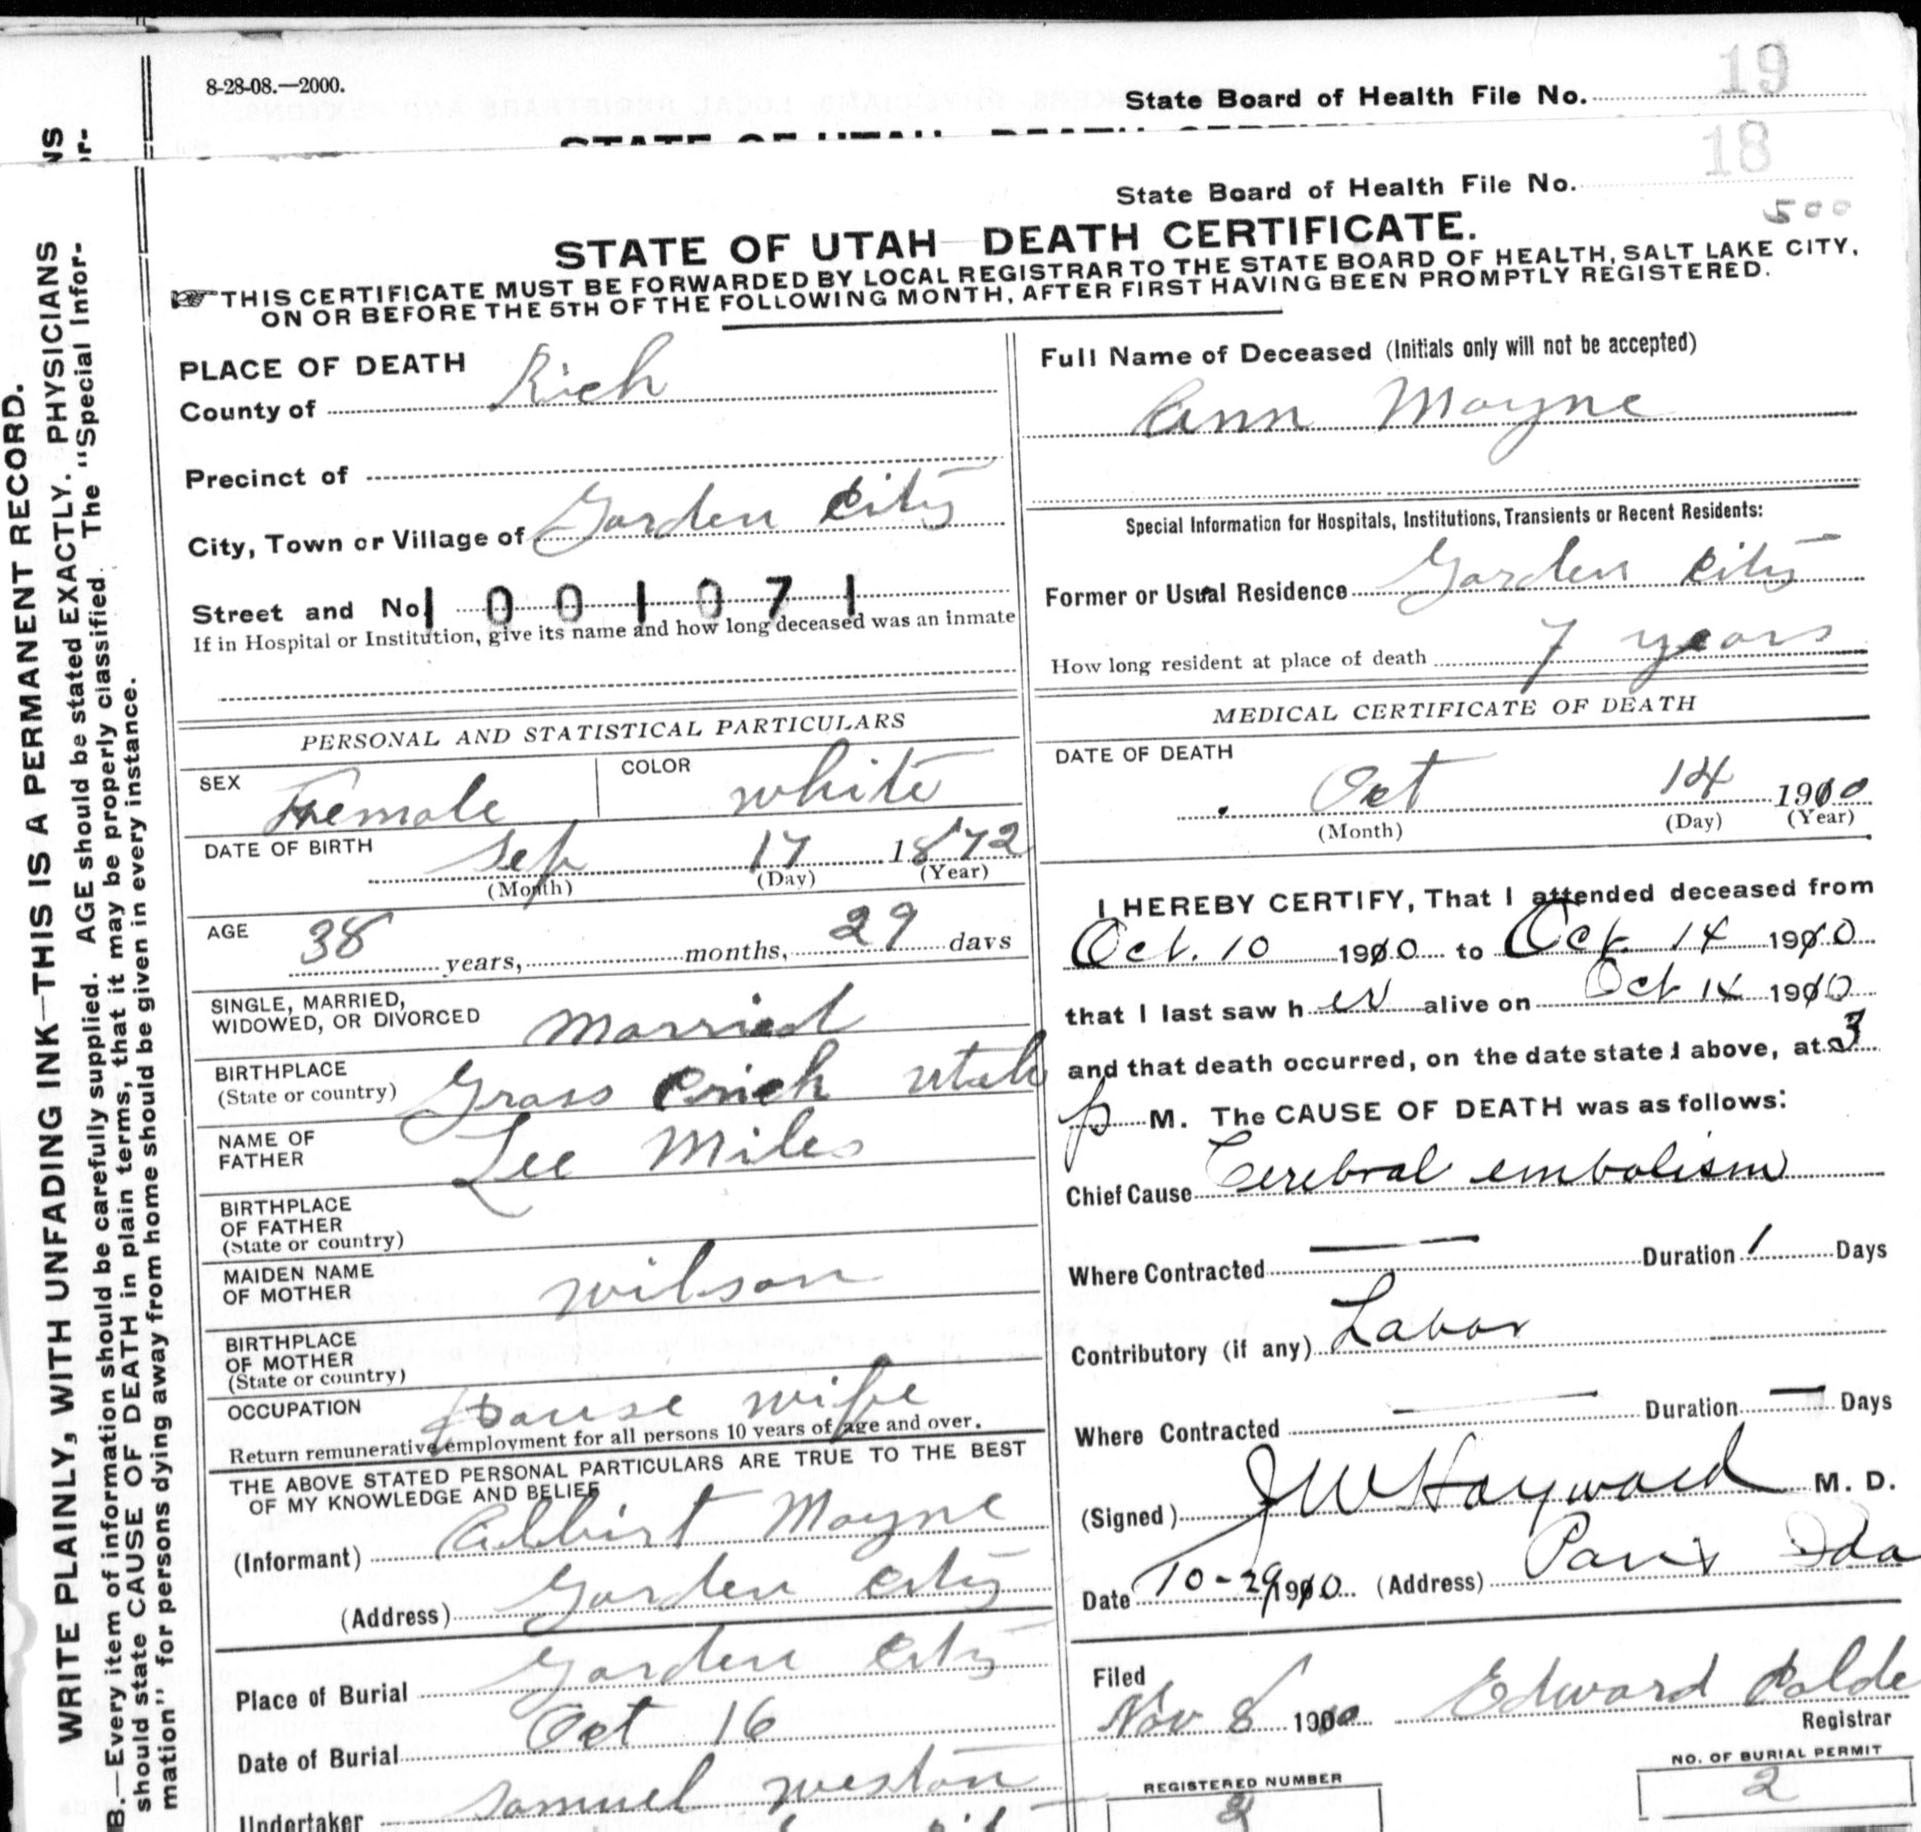 8-28-08.—2000.
State Board of Health File No. 19
STATE OF UTAH DEATH
State Board of Health File No. 18
500
STATE OF UTAH—DEATH CERTIFICATE.
THIS CERTIFICATE MUST BE FORWARDED BY LOCAL REGISTRAR TO THE STATE BOARD OF HEALTH, SALT LAKE CITY,
ON OR BEFORE THE 5TH OF THE FOLLOWING MONTH, AFTER FIRST HAVING BEEN PROMPTLY REGISTERED.
WRITE PLAINLY, WITH UNFADING INK—THIS IS A PERMANENT RECORD.
B.—Every item of information should be carefully supplied. AGE should be stated EXACTLY. PHYSICIANS
should state CAUSE OF DEATH in plain terms, that it may be properly classified. The "Special Infor-
mation" for persons dying away from home should be given in every instance.
PLACE OF DEATH
County of Rich
Precinct of
City, Town or Village of Garden City
Street and No. 1001071
If in Hospital or Institution, give its name and how long deceased was an inmate
PERSONAL AND STATISTICAL PARTICULARS
SEX Female COLOR white
DATE OF BIRTH Sep 17 1872
(Month) (Day) (Year)
AGE 38 years, months, 29 days
SINGLE, MARRIED,
WIDOWED, OR DIVORCED married
BIRTHPLACE
(State or country) Grass Crich utah
NAME OF
FATHER Lee Miles
BIRTHPLACE
OF FATHER
(State or country)
MAIDEN NAME
OF MOTHER wilson
BIRTHPLACE
OF MOTHER
(State or country)
OCCUPATION House wife
Return remunerative employment for all persons 10 years of age and over.
THE ABOVE STATED PERSONAL PARTICULARS ARE TRUE TO THE BEST
OF MY KNOWLEDGE AND BELIEF
(Informant) Albirt Mayne
(Address) Garden City
Place of Burial Garden City
Date of Burial Oct 16
Undertaker Samuel Weston
Full Name of Deceased (Initials only will not be accepted)
Ann Mayne
Special Information for Hospitals, Institutions, Transients or Recent Residents:
Former or Usual Residence Garden City
How long resident at place of death 7 years
MEDICAL CERTIFICATE OF DEATH
DATE OF DEATH
Oct 14 1910
(Month) (Day) (Year)
I HEREBY CERTIFY, That I attended deceased from
Oct. 10 1910 to Oct. 14 1910
that I last saw her alive on Oct 14 1910
and that death occurred, on the date stated above, at 3
p M. The CAUSE OF DEATH was as follows:
Chief Cause Cerebral embolism
Where Contracted — Duration 1 Days
Contributory (if any) Labor
Where Contracted — Duration — Days
(Signed) J W Hayward M. D.
Date 10-29 1910 (Address) Paris Ida
Filed
Nov 8 1910 Edward Calde
Registrar
REGISTERED NUMBER
NO. OF BURIAL PERMIT
2